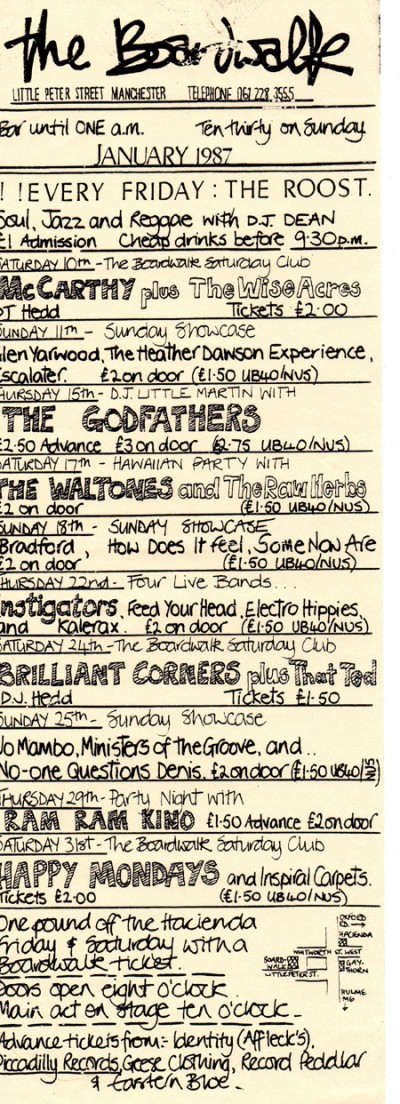 the Boardwalk
LITTLE PETER STREET MANCHESTER TELEPHONE 061 228 3555
Bar until ONE a.m. Ten thirty on Sunday
JANUARY 1987
! !EVERY FRIDAY : THE ROOST.
Soul, Jazz and Reggae with D.J. DEAN
£1 Admission Cheap drinks before 9·30p.m.
SATURDAY 10th - The Boardwalk Saturday Club
McCARTHY plus The Wise Acres
DJ Hedd Tickets £2·00
SUNDAY 11th - Sunday Showcase
Glen Yarwood, The Heather Dawson Experience,
Escalater. £2 on door (£1·50 UB40/NUS)
THURSDAY 15th - D.J. LITTLE MARTIN WITH
THE GODFATHERS
£2·50 Advance £3 on door (£2·75 UB40/NUS)
SATURDAY 17th - HAWAIIAN PARTY WITH
THE WALTONES and The Raw Herbs
£2 on door (£1·50 UB40/NUS)
SUNDAY 18th - SUNDAY SHOWCASE
Bradford, How Does It Feel, Some Now Are
£2 on door (£1·50 UB40/NUS)
THURSDAY 22nd - Four Live Bands...
Instigators, Feed Your Head, Electro Hippies,
and Kalerax. £2 on door (£1·50 UB40/NUS)
SATURDAY 24th - The Boardwalk Saturday Club
BRILLIANT CORNERS plus That Ted
D.J. Hedd Tickets £1·50
SUNDAY 25th - Sunday Showcase
Jo Mambo, Ministers of the Groove, and ..
No-one Questions Denis. £2 on door (£1·50 UB40/NUS)
THURSDAY 29th - Party Night with
RAM RAM KINO £1·50 Advance £2 on door
SATURDAY 31st - The Boardwalk Saturday Club
HAPPY MONDAYS and Inspiral Carpets.
Tickets £2·00 (£1·50 UB40/NUS)
One pound off the Hacienda
Friday & Saturday with a
Boardwalk ticket.
Doors open eight o'clock
Main act on stage ten o'clock
OXFORD
RD. →
HACIENDA
WHITWORTH ST. WEST
BOARD-
WALK
GAY-
THORN
LITTLE PETER ST.
HULME
M6
Advance tickets from:- Identity (Affleck's),
Piccadilly Records, Geese Clothing, Record Peddlar
& Eastern Bloc.